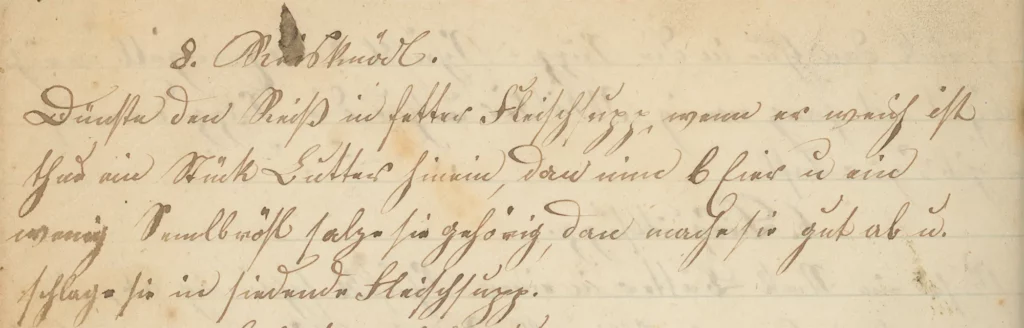 8. Reisknödl.
Dünste den Reiß in fetter Fleischsupp, wenn er weich ist
thue ein Stück Butter hinein, dan nim 6 Eier u ein
wenig Semlbrösl salze sie gehörig, dan mache sie gut ab u.
schlage sie in siedende Fleischsupp.